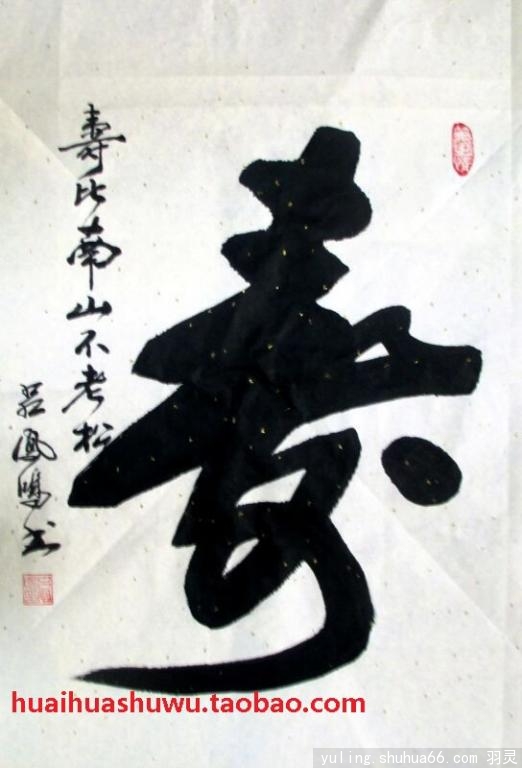 寿
寿比南山不老松
吕鳳鸣书
huaihuashuwu.taobao.com
yuling.shuhua66.com 羽灵